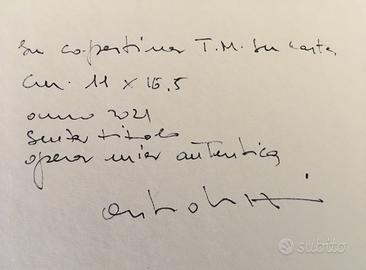 su copertina T.M. su carta
cm. 11 x 16.5
anno 2021
senza titolo
opera mia autentica
subito